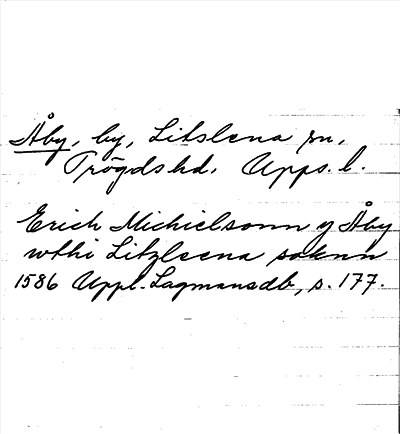 Åby, by, Litslena sn,
Trögds hd. Upps. l.
Erich Michielsonn y Åby
wthi Litzleena soknn
1586 Uppl. Lagmansdb, s. 177.